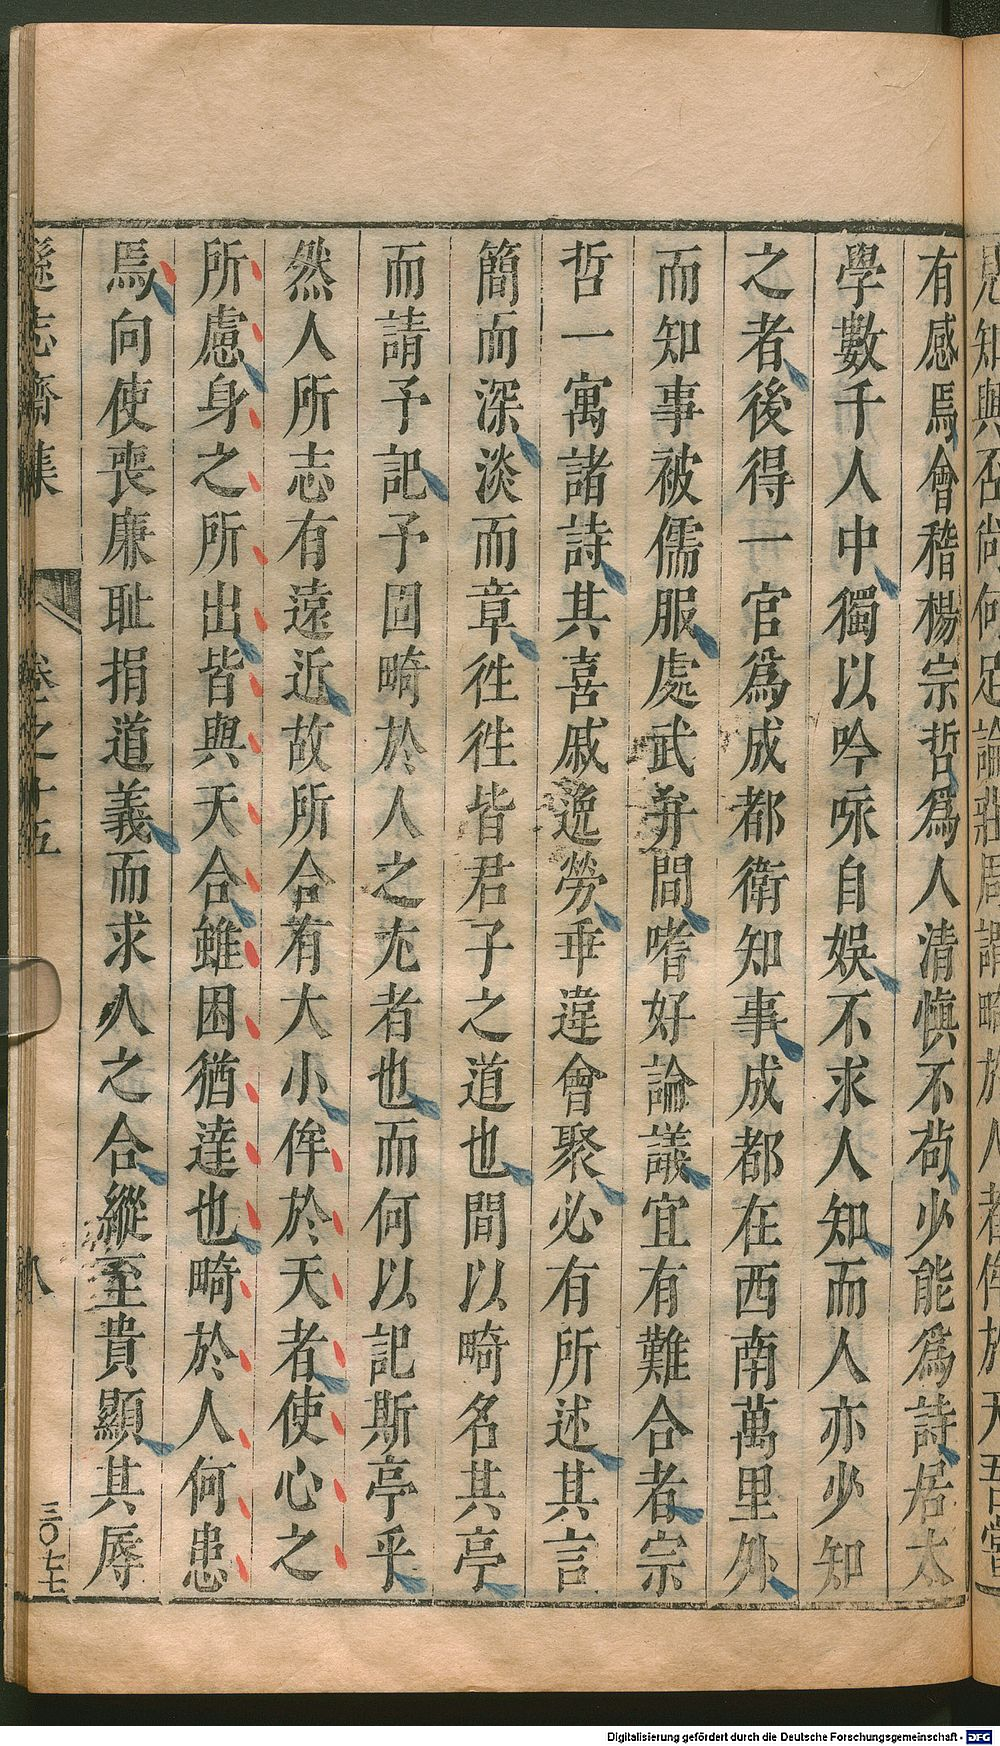 見知與否尚何足論莊周謂畸於人者侔於天吾嘗
有感焉會稽楊宗哲為人清慎不茍少能為詩居太
學數千人中獨以吟咏自娛不求人知而人亦少知
之者後得一官為成都衛知事成都在西南萬里外
而知事被儒服處武弁間嗜好論議宜有難合者宗
哲一寓諸詩其喜戚逸勞乖違會聚必有所述其言
簡而深淡而章徃徃皆君子之道也間以畸名其亭
而請予記予固畸於人之尤者也而何以記斯亭乎
然人所志有遠近故所合有大小侔於天者使心之
所慮身之所出皆與天合雖困猶達也畸於人何患
焉向使喪廉恥捐道義而求人之合縱至貴顯其辱
遜志齋集 卷之十五 八 三〇七七
Digitalisierung gefördert durch die Deutsche Forschungsgemeinschaft - DFG